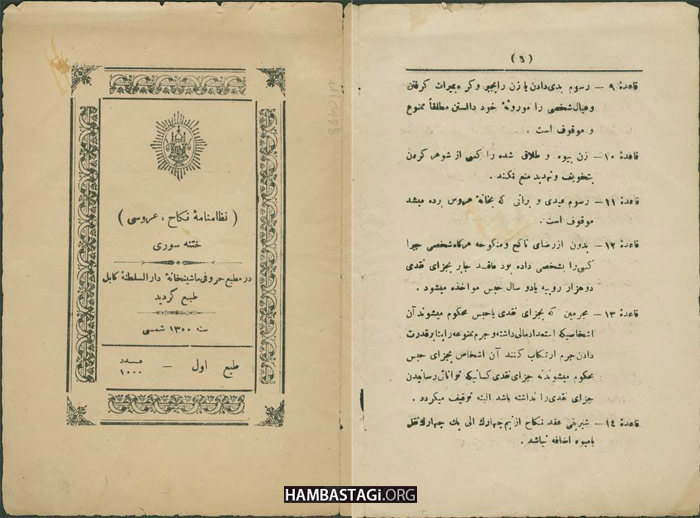 ( نظامنامهٔ نکاح ، عروسی )
ختنه سوری
در مطبع حروفی ماشینخانهٔ دار السلطنهٔ کابل
طبع گردید
سنه ۱۳۰۰ شمسی
طبع اول — عدد ۱۰۰۰
( ٦ )
قاعدهٔ ۹ — رسوم بدی دادن یا زن را بجبر و کره بمیراث گرفتن
و عیال شخصی را موروثهٔ خود دانستن مطلقاً ممنوع
و موقوف است .
قاعدهٔ ۱۰ — زن بیوه و طلاق شده را کسی از شوهر کردن
بتخویف و تهدید منع نکند .
قاعدهٔ ۱۱ — رسوم عیدی و براتی که بخانهٔ عروس برده میشد
موقوف است .
قاعدهٔ ۱۲ — بدون از رضای ناکح و منکوحه هرگاه شخصی جبراً
کسی را بشخصی داده بود عاقد جابر بجزای نقدی
دو هزار روپیه یا دو سال حبس مواخذه میشود .
قاعدهٔ ۱۳ — مجرمین که بجزای نقدی یا حبس محکوم میشوند آن
اشخاصیکه استعداد مالی داشته و جرم ممنوعه را بنابر قدرت
دادن جرم ارتکاب کنند آن اشخاص بجزای حبس
محکوم میشوند نه جزای نقدی کسانیکه توانائی رسانیدن
جزای نقدی را نداشته باشد البته توقیف میگردد .
قاعدهٔ ۱۴ — شیرینی عقد نکاح از نیم چهارک الی یک چهارک نقل
یا میوه اضافه نباشد .
HAMBASTAGI.ORG